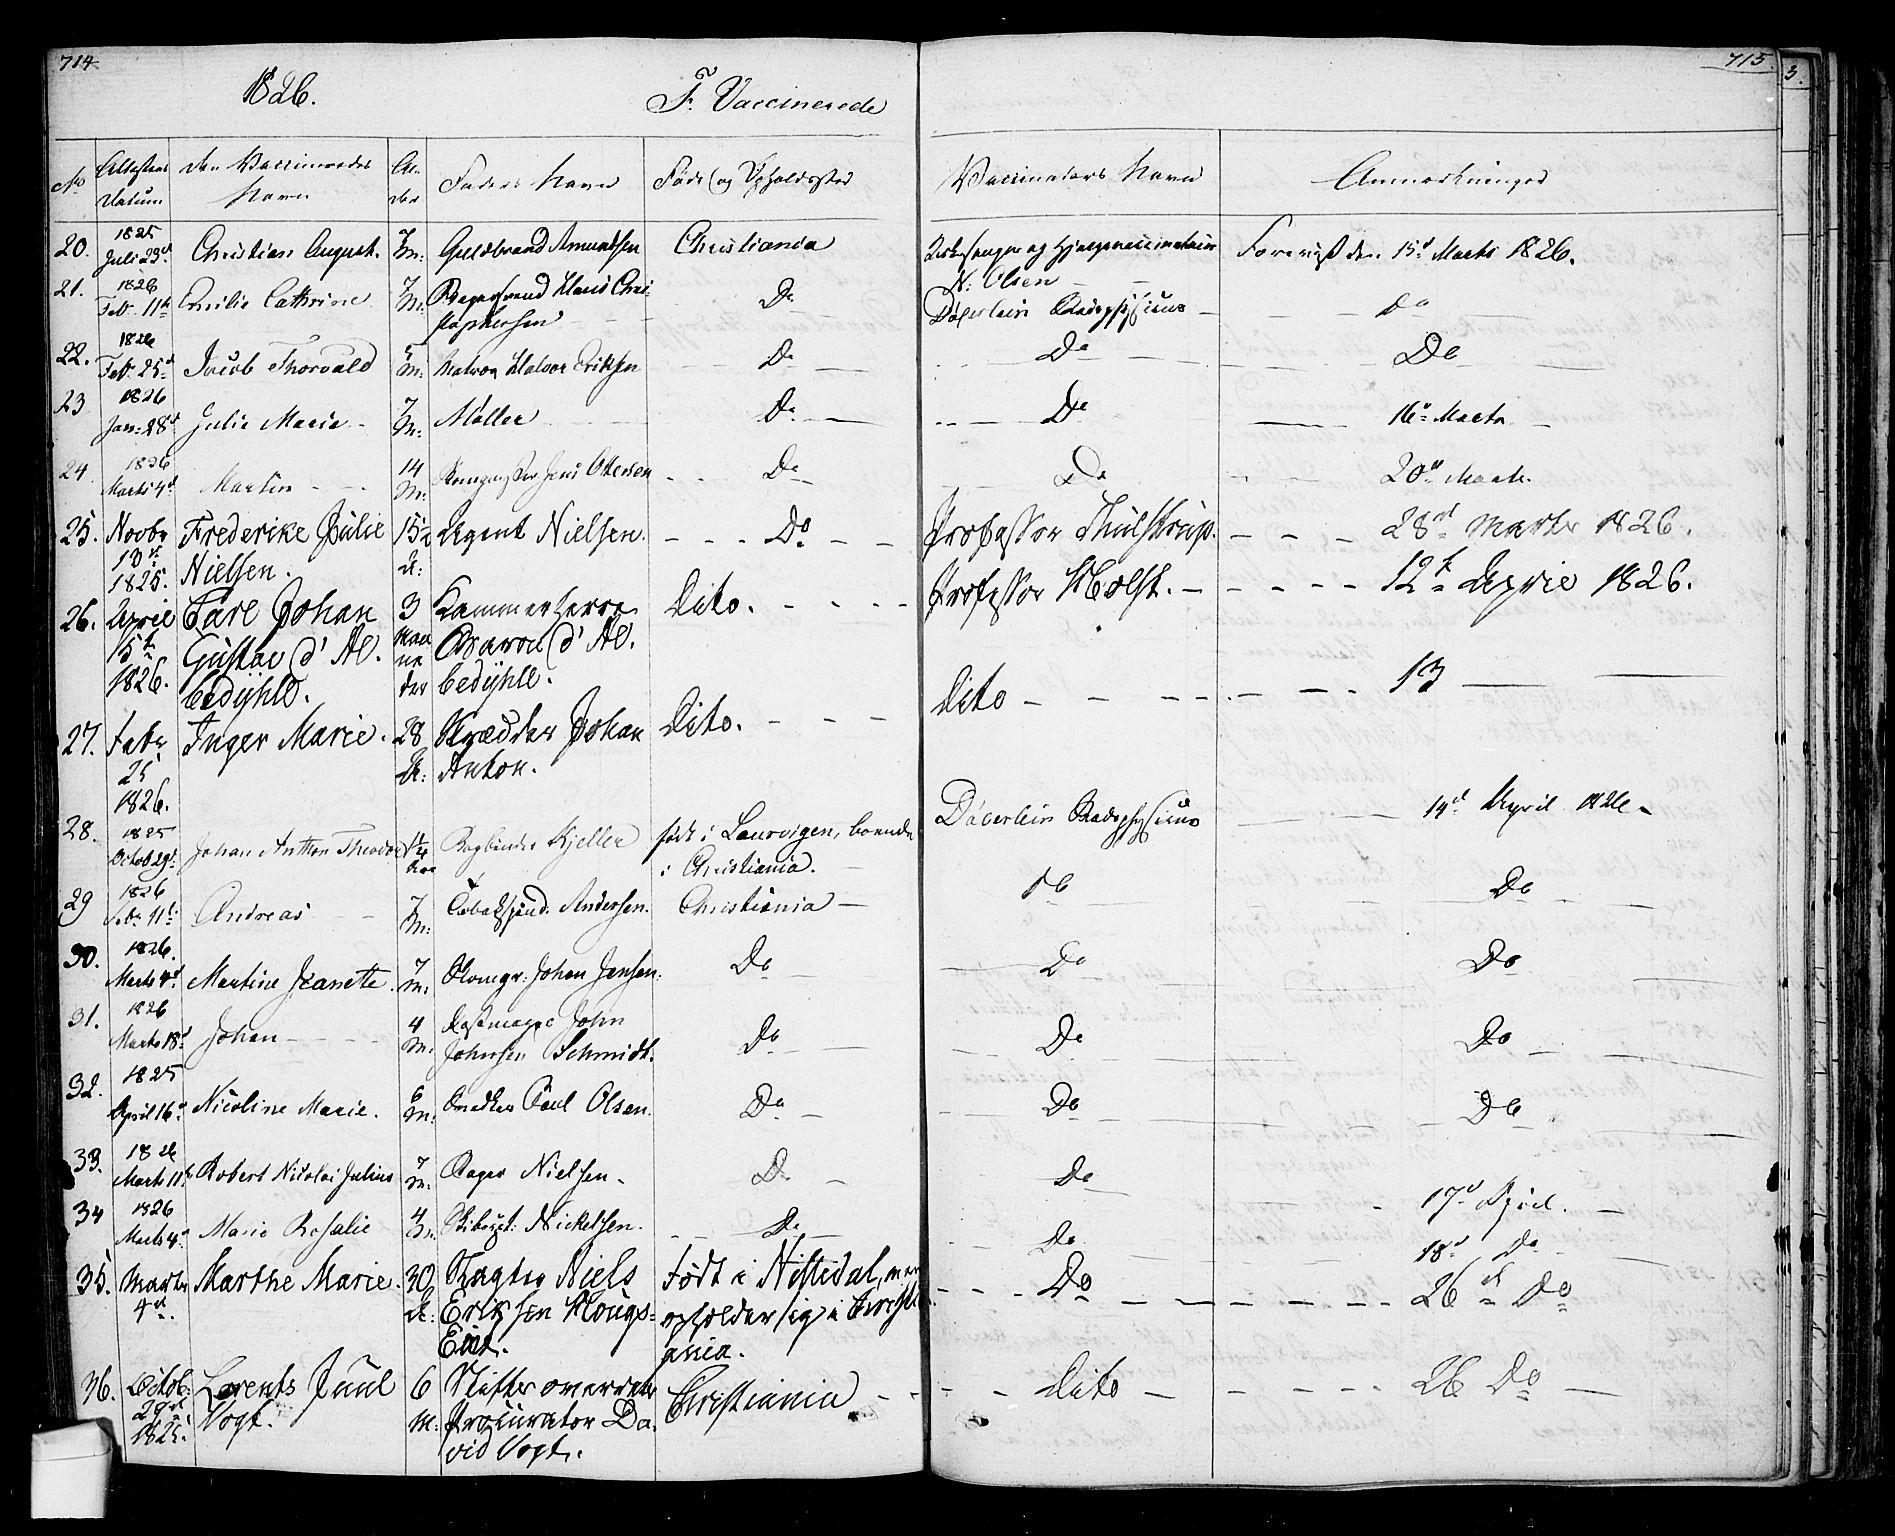 714
1826.
F. Vaccinerede
715.
3.
No Attestens Datum
den Vaccineredes Navn
Alder
Faders Navn
Føde- og Opholdssted
Vaccinateurs Navn
Anmærkninger
20. 1825 Juli 23d Christian August. 7 M: Guldbrand Amundsen Christiania Kirkesanger og Hjælpevaccinateur N: Olsen Foreviist den 15d Marts 1826.
21. 1826 Feb. 11t Emilie Cathrine 7 M: Hans Christophersen Do Døderlein Stadsphysicus Do
22. 1826 Feb. 25d Jacob Thorvald 5 M: Matros Halvor Eriksen Do Do Do
23 1826 Jan: 28d Julie Marie 7 M: Møller Do Do 16d Marts
24 1826 Marts 4d Martin 14 M: Jens Ottersen Do Do 20d Marts
25. Novbr 13d 1825. Frederike Julie Nielsen. 15 A: Agent Nielsen. Do Professor Thulstrup. 28d Marts 1826.
26. April 15t 1826. Carl Johan Gustav d' Albedÿhld. 3 Maaneder Kammerherre Baron d' Albedÿhll. Dito. Professor Holst. 12t April 1826.
27. Febr 25 1826. Inger Marie. 28 A: Skrædder Johan Anton. Dito. Dito 13
28. 1825 Octob 29d Johan Anthon Theodor Aar Bogbinder Kjeller født i Laurvigen, boende i Christiania. Døderlein Stadsphysicus 14d April 1826
29 1826 Feb. 11t Andreas 7 M: Tobakspind. Andersen. Christiania Do Do
30. 1826. Marts 4d Martine Jeanette. 7 M: Skomgr: Johan Jensen. Do Do Do
31. 1826 Marts 18d Johan 4 M: John Johnsen Schmidt. Do Do Do
32. 1825 April 16d Nicoline Marie. 6 M: Snedker Poul Olsen. Do Do Do
33. 1826 Marts 11t Robert Nicolai Julius 7 M: Bager Nielsen. Do Do 17d April.
34 1826 Marts 4d Marie Rosalie 4 M: Nickelsen. Do Do 18d Do
35. Marts 4d. Marthe Marie. 30 A: Slagter Niels Eriksen Hougs=Eiet. Født i Nittedal, men opholder sig i Christiania. Do 26d Do
36. Octob: 29d 1825. Lorents Juul Vogt. 6 M: Stiftsoverrets Procurator David Vogt. Christiania Dito 26 Do